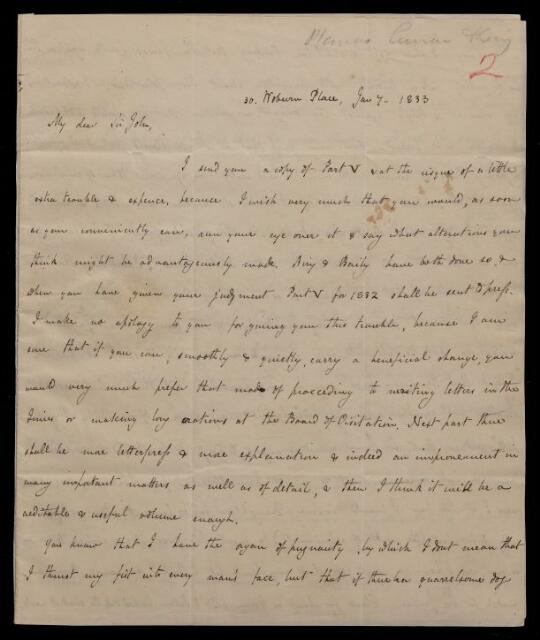 2
30. Woburn Place, Jan 7. 1833
My dear Sir John,
I send you a copy of Part V at the risque of a little
extra trouble & expence, because I wish very much that you would, as soon
as you conveniently can, run your eye over it & say what alterations you
think might be advantageously made. Airy & Baily have both done so, &
when you have given your judgment Part V for 1832 shall be sent to press.
I make no apology to you for giving you this trouble, because I am
sure that if you can, smoothly & quickly, carry a beneficial change, you
would very much prefer that mode of proceeding to writing letters in the
Times or making long orations at the Board of Visitation. Next part there
shall be more letterpress & more explanation & indeed an improvement in
many important matters as well as of detail, & then I think it will be a
creditable & useful volume enough.
You know that I have the organ of pugnacity, by which I dont mean that
I thrust my fist into every man's face, but that if there be a quarrelsome dog